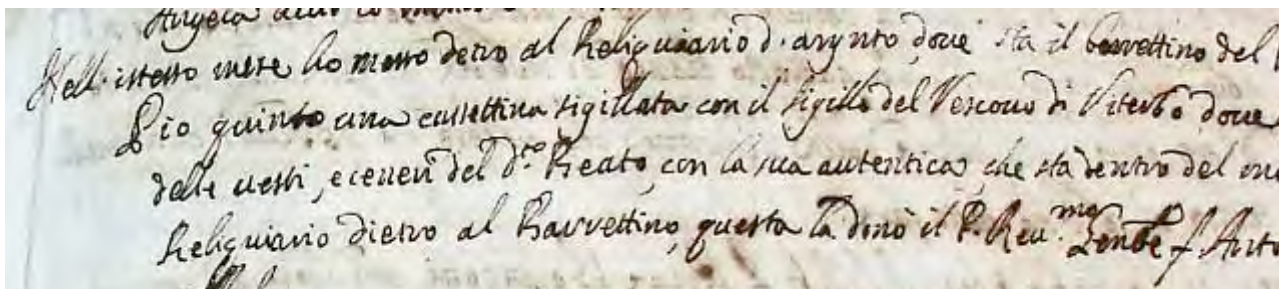 Angela
Nell'istesso mese ho messo detro al Reliquiario d'argnto, dove sta il berrettino del
Pio quinto una cassettina sigillata con il sigillo del Vescouo di Viterbo doue
delle uesti, e ceneri del d.to Beato, con la sua autentica, che sta dentro del
Reliquiario dietro al Barrettino, questa la donò il P. Reu.mo f. Anto